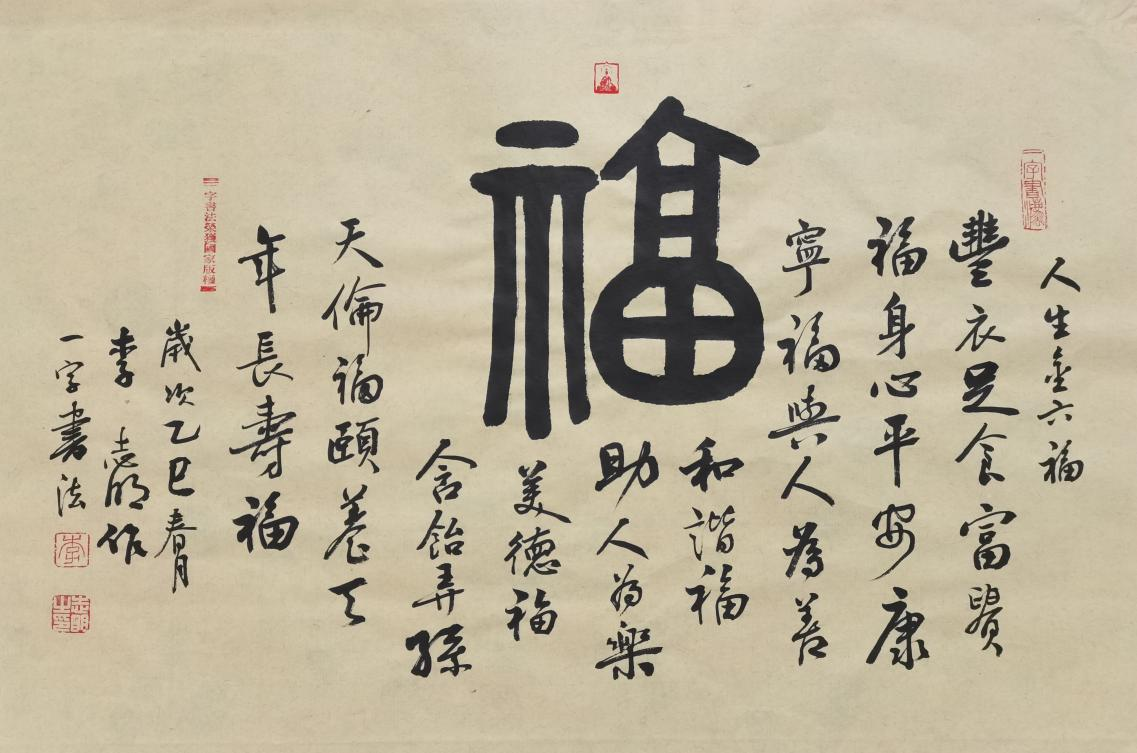 一字書法
人生金六福
豐衣足食富貴
福身心平安康
寧福與人為善
福
和諧福
助人为樂
美德福
含飴弄孫
天倫福頤養天
年長壽福
一字書法榮獲國家版權
歲次乙巳春月
李志明作
一字書法
李
志明之印